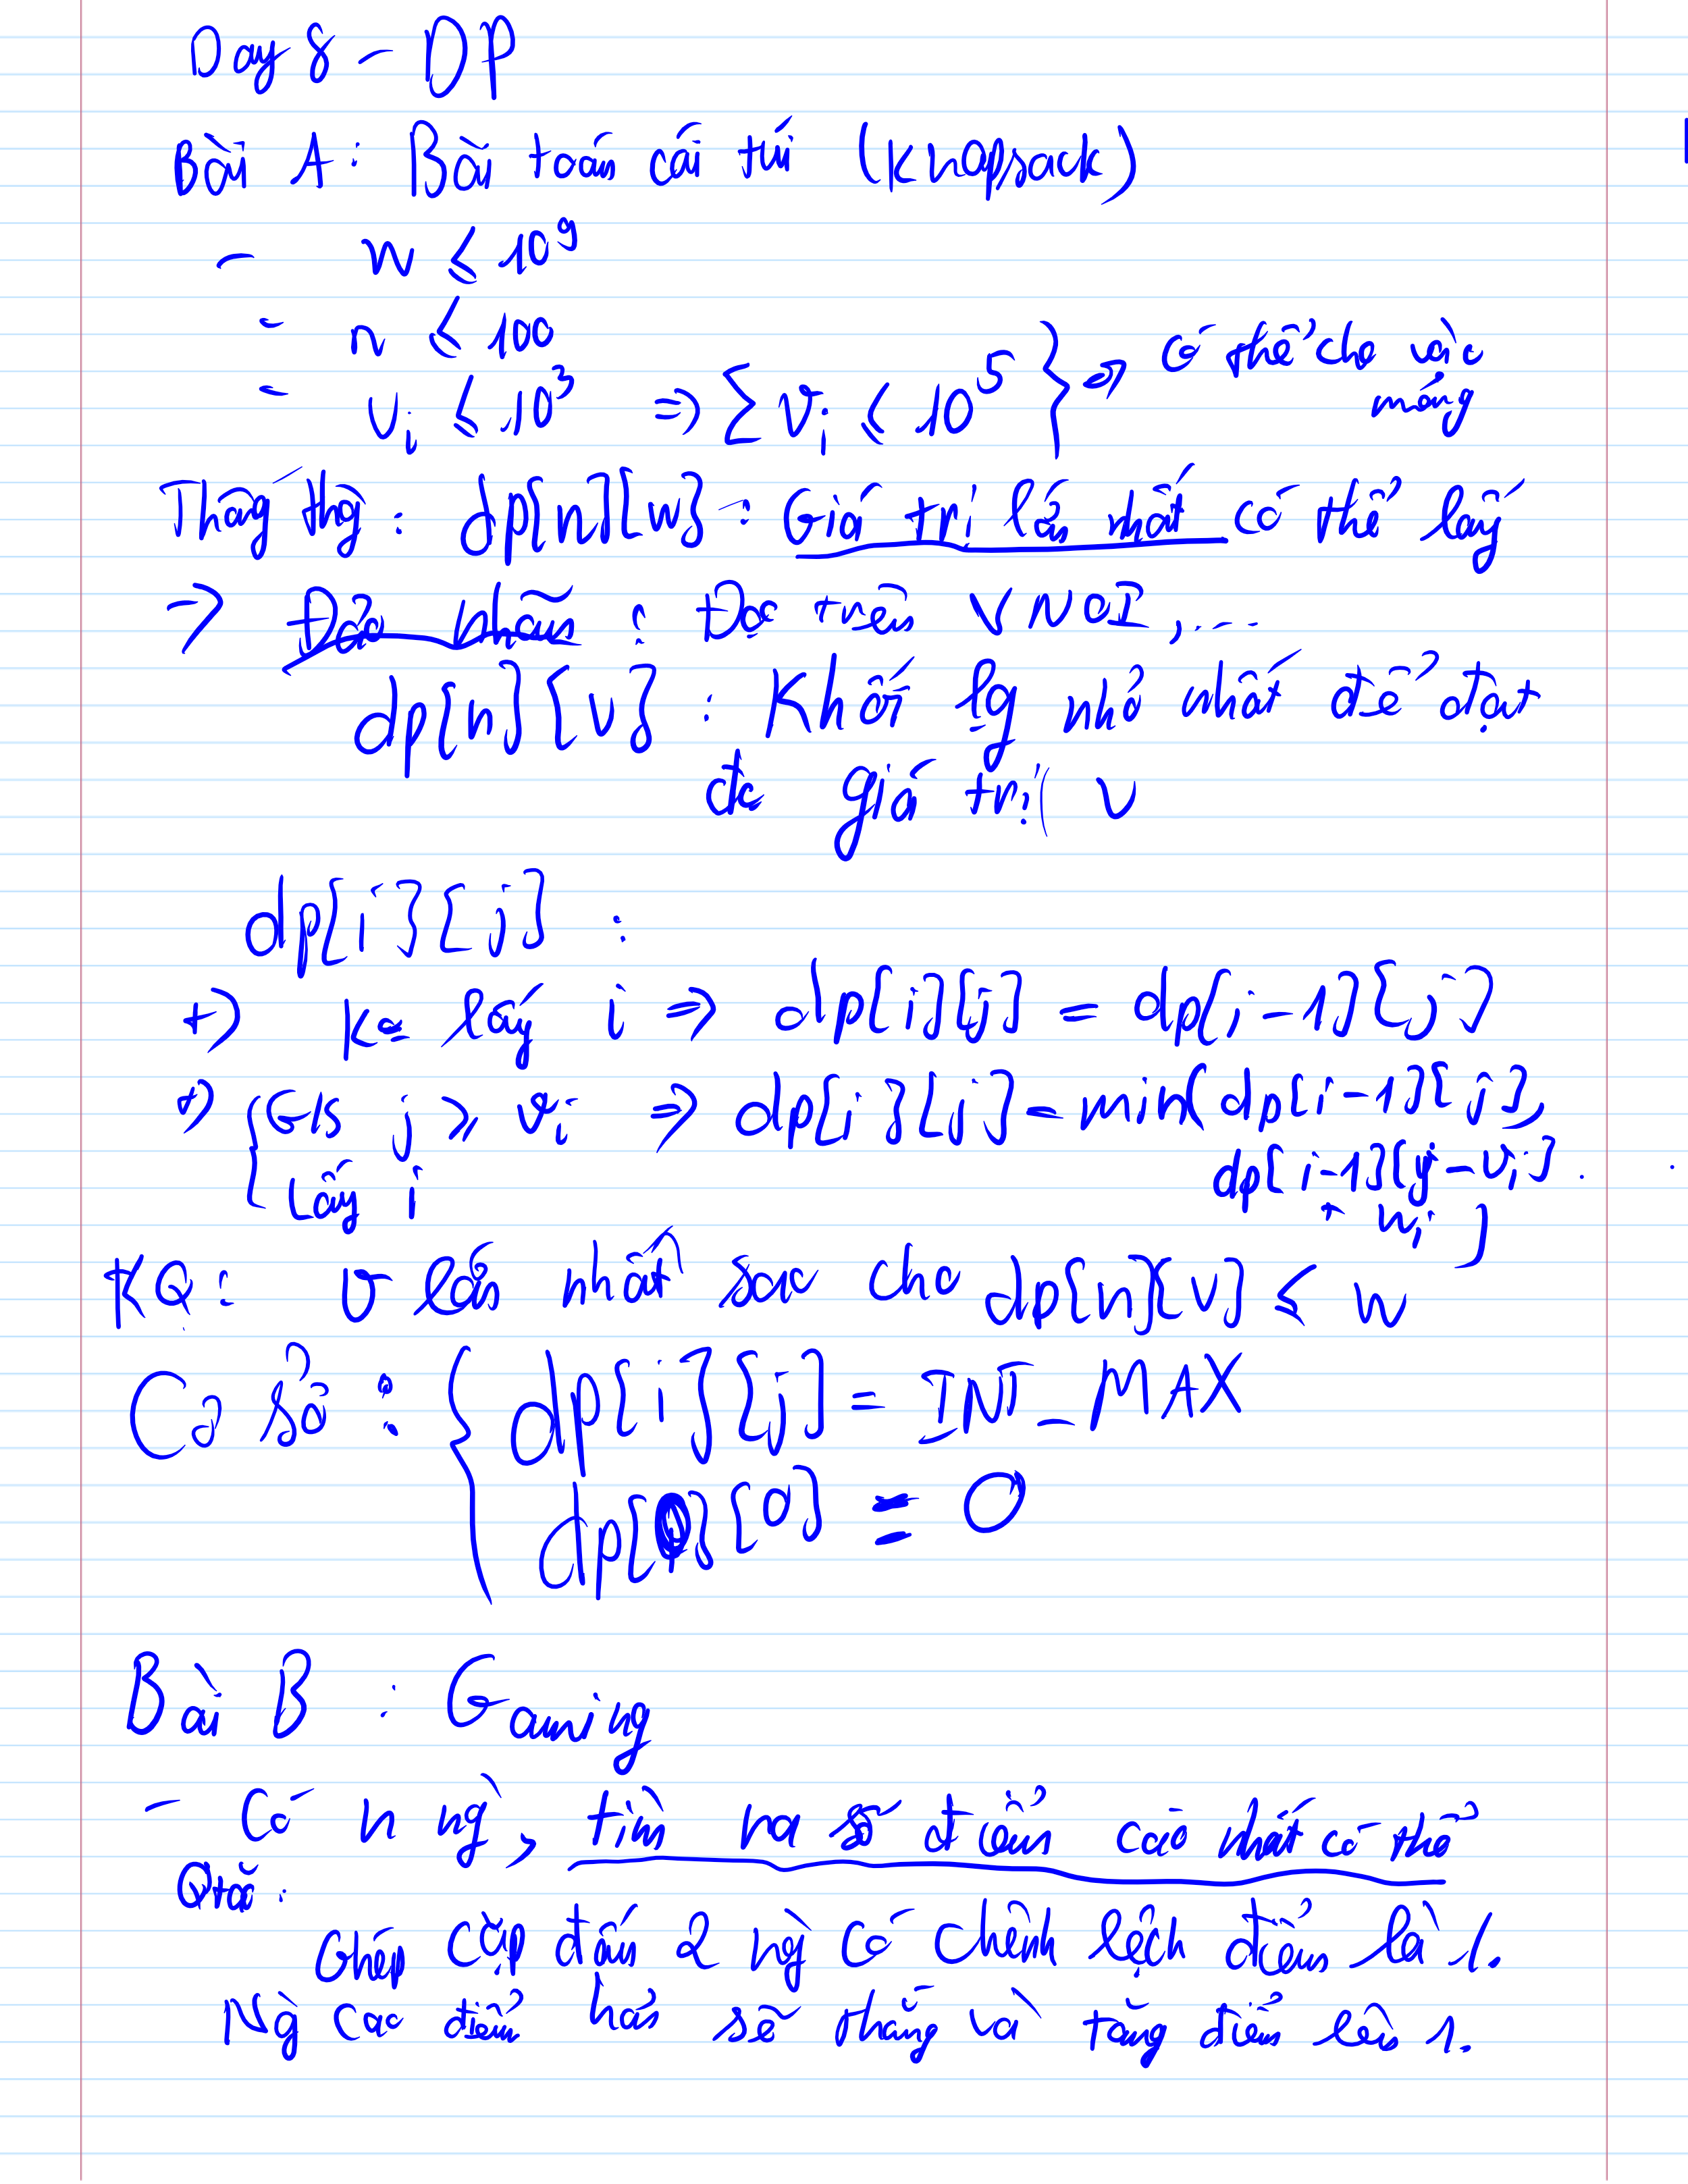 Day 8 - DP
Bài A: Bài toán cái túi (Knapsack)
- W ≤ 10^9
- n ≤ 100
- v_i ≤ 10^3 => ∑ v_i ≤ 10^5 } => Có thể cho vào
mảng
Thông thg: dp[n][w]: Giá trị lớn nhất có thể lấy
-> Đảo nhãn: Đọc trên VNOI,...
dp[n][v]: Khối lg nhỏ nhất để đạt
đc giá trị v
dp[i][j]:
+) Ko lấy i => dp[i][j] = dp[i-1][j]
+) { G/s j ≥ v_i => dp[i][j] = min(dp[i-1][j],
Lấy i dp[i-1][j-v_i]
+ w_i)
KQ: v lớn nhất sao cho dp[n][v] ≤ W
Cơ sở: { dp[i][j] = INT_MAX
dp[0][0] = 0
Bài B: Gaming
- Có n ng, tìm ra số điểm cao nhất có thể
Qtắc:
Ghép cặp đấu 2 ng có chênh lệch điểm là 1.
Ng cao điểm hơn sẽ thắng và tăng điểm lên 1.